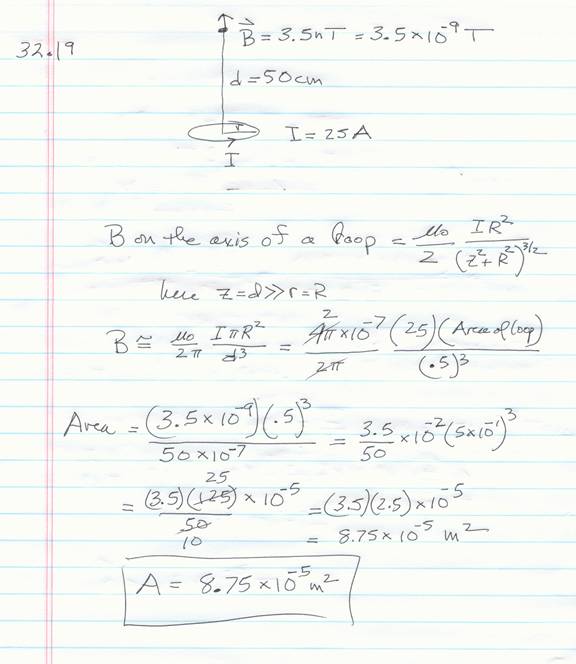 32.19
B⃗ = 3.5nT = 3.5×10⁻⁹ T
d=50cm
r
I = 25A
I
B on the axis of a loop = μ₀/2 IR²/(z²+R²)^3/2
here z=d≫r=R
B ≅ μ₀/2π IπR²/d³ = 4π×10⁻⁷/2π 2 (25)(Area of loop)/(.5)³
Area = (3.5×10⁻⁹)(.5)³/50×10⁻⁷ = 3.5/50 ×10⁻²(5×10⁻¹)³
25
= (3.5)(125)×10⁻⁵/50 = (3.5)(2.5)×10⁻⁵
10
= 8.75×10⁻⁵ m²
A = 8.75×10⁻⁵ m²